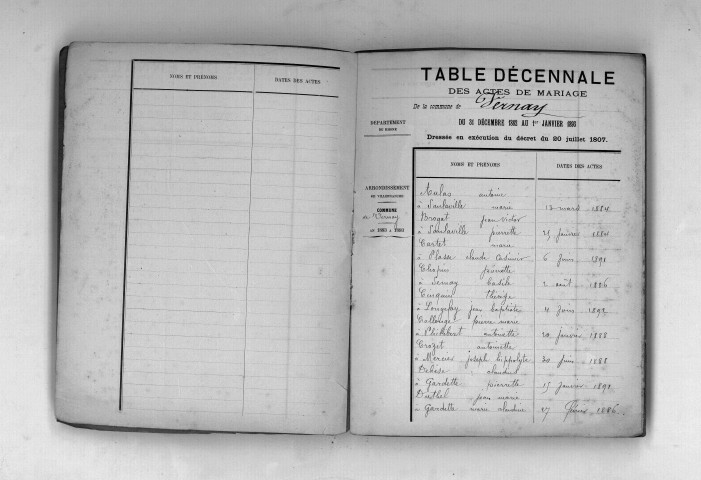 NOMS ET PRÉNOMS DATES DES ACTES
DÉPARTEMENT
DU RHONE
ARRONDISSEMENT
DE VILLEFRANCHE
COMMUNE
de Vernay
de 1883 à 1893
TABLE DÉCENNALE
DES ACTES DE MARIAGE
De la commune de Vernay
DU 31 DÉCEMBRE 1882 AU 1er JANVIER 1893
Dressée en exécution du décret du 20 juillet 1807.
NOMS ET PRÉNOMS DATES DES ACTES
Aulas antoine
à Sanlaville marie 13 mars 1884
Brogat jean victor
à Sanlaville pierrette 25 janvier 1884
Cartet marie
à Plasse claude casimir 6 juin 1891
Chapuis pierrette
à Bastile 2 août 1886
thérèse
à Longefay jean baptiste 4 juin 1892
Collonge pierre marie
à antoinette 20 janvier 1883
Crozet antoinette
à Mercier joseph hippolyte 30 juin 1888
Debise claudius
à Gardette pierrette 15 janvier 1892
Duthel jean marie
à Gardette marie claudine 27 février 1886